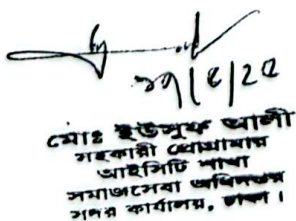 ২৭/৫/২৫
মোঃ ইউসুফ আলী
সহকারী প্রোগ্রামার
আইসিটি শাখা
সমাজসেবা অধিদফতর
সদর কার্যালয়, ঢাকা।